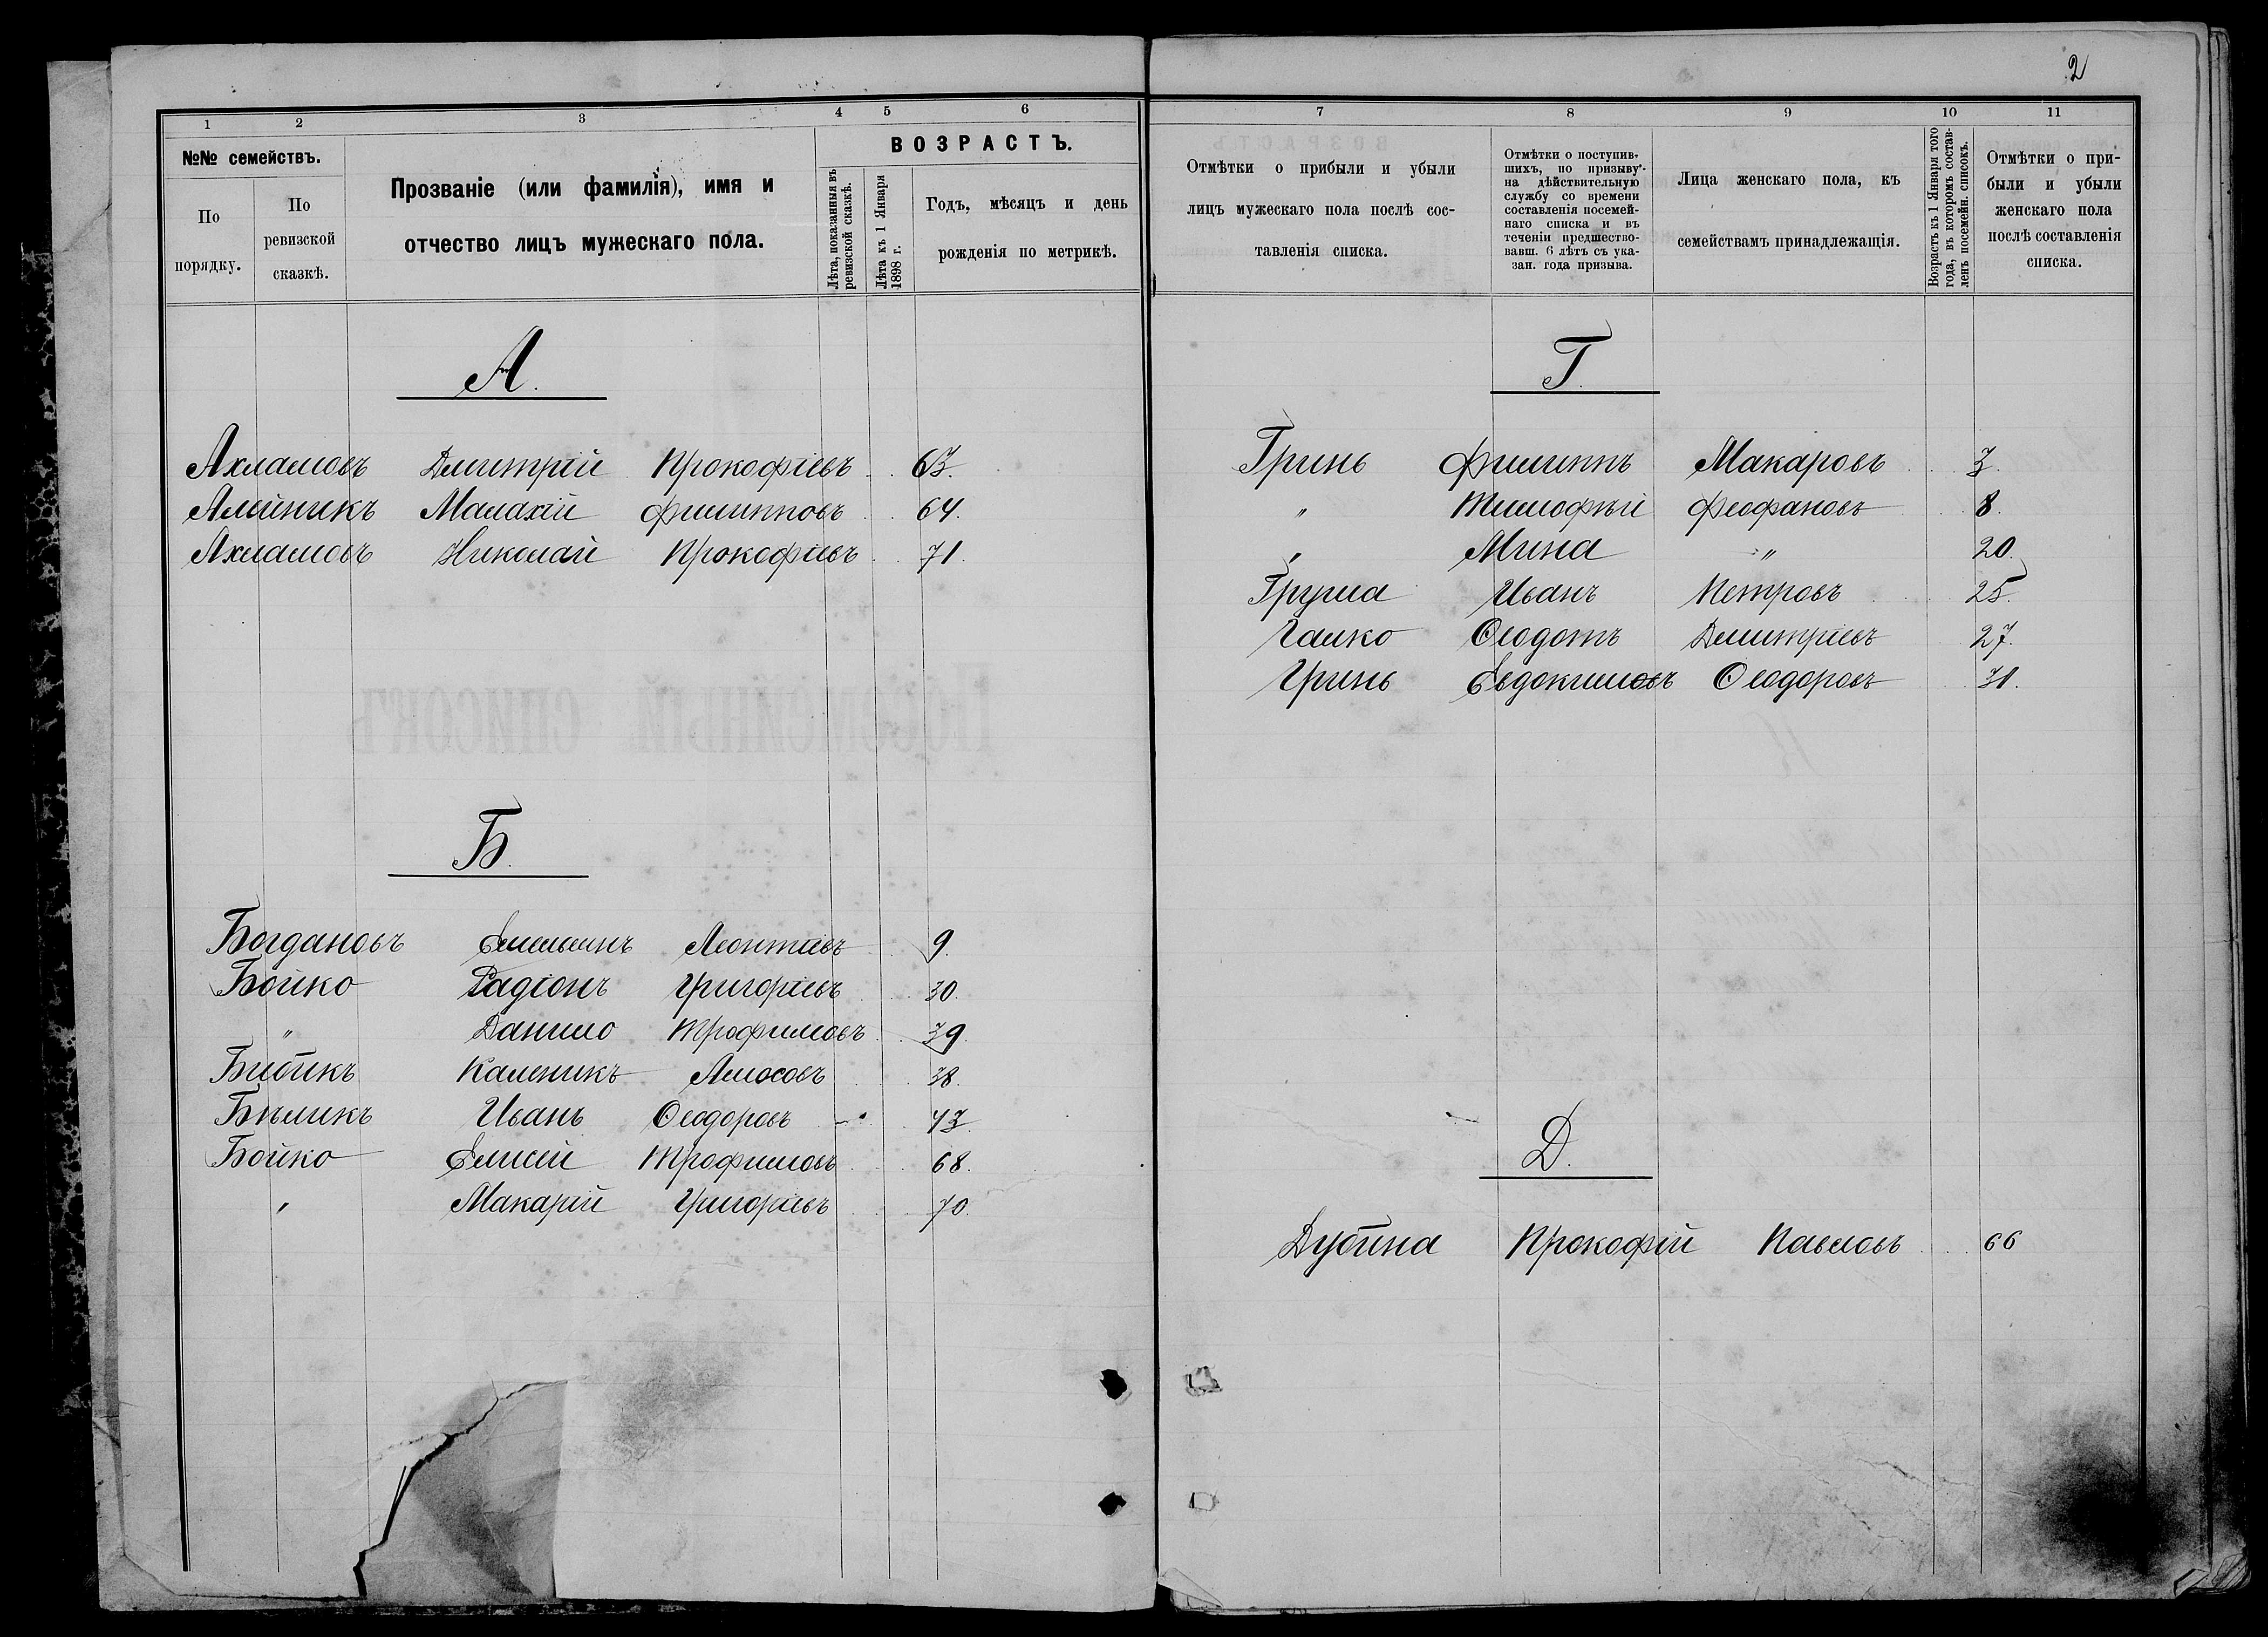 2
1 2 3 4 5 6
№№ семействъ.
По порядку.
По ревизской сказкѣ.
Прозваніе (или фамилія), имя и
отчество лицъ мужескаго пола.
ВОЗРАСТЪ.
Лѣта, показанныя въ ревизской сказкѣ.
Лѣта къ 1 Января 1898 г.
Годъ, мѣсяцъ и день
рожденія по метрикѣ.
А.
Ахламовъ Дмитрій Прокофіевъ 63.
Алейникъ Малахій Филипповъ 64.
Ахламовъ Николай Прокофіевъ 71.
Б.
Богдановъ Емельянъ Леонтіевъ 9.
Бойко Радіонъ Григоріевъ 30.
" Данило Трофимовъ 39.
Бибикъ Каленикъ Амосовъ 38.
Бѣликъ Иванъ Ѳеодоровъ 43.
Бойко Елисей Трофимовъ 68.
" Макарій Григоріевъ 70.
7 8 9 10 11
Отмѣтки о прибыли и убыли
лицъ мужескаго пола послѣ сос-
тавленія списка.
Отмѣтки о поступив-
шихъ, по призыву
на дѣйствительную
службу со времени
составленія посемей-
наго списка и въ
теченіи предшество-
вавш. 6 лѣтъ съ ука-
зан. года призыва.
Лица женскаго пола, къ
семействамъ принадлежащія.
Возрастъ къ 1 Января того
года, въ которомъ состав-
ленъ посемейн. списокъ.
Отмѣтки о при-
были и убыли
женскаго пола
послѣ составленія
списка.
Г.
Гринь Филиппъ Макаровъ 3.
" Тимофѣй Феофановъ 8.
" Мина " 20.
Грума Иванъ Петровъ 25.
Галко Ѳеодотъ Дмитріевъ 27.
Гринь Евдокимовъ Ѳеодоровъ 31.
Д.
Дубина Прокофій Павловъ 66